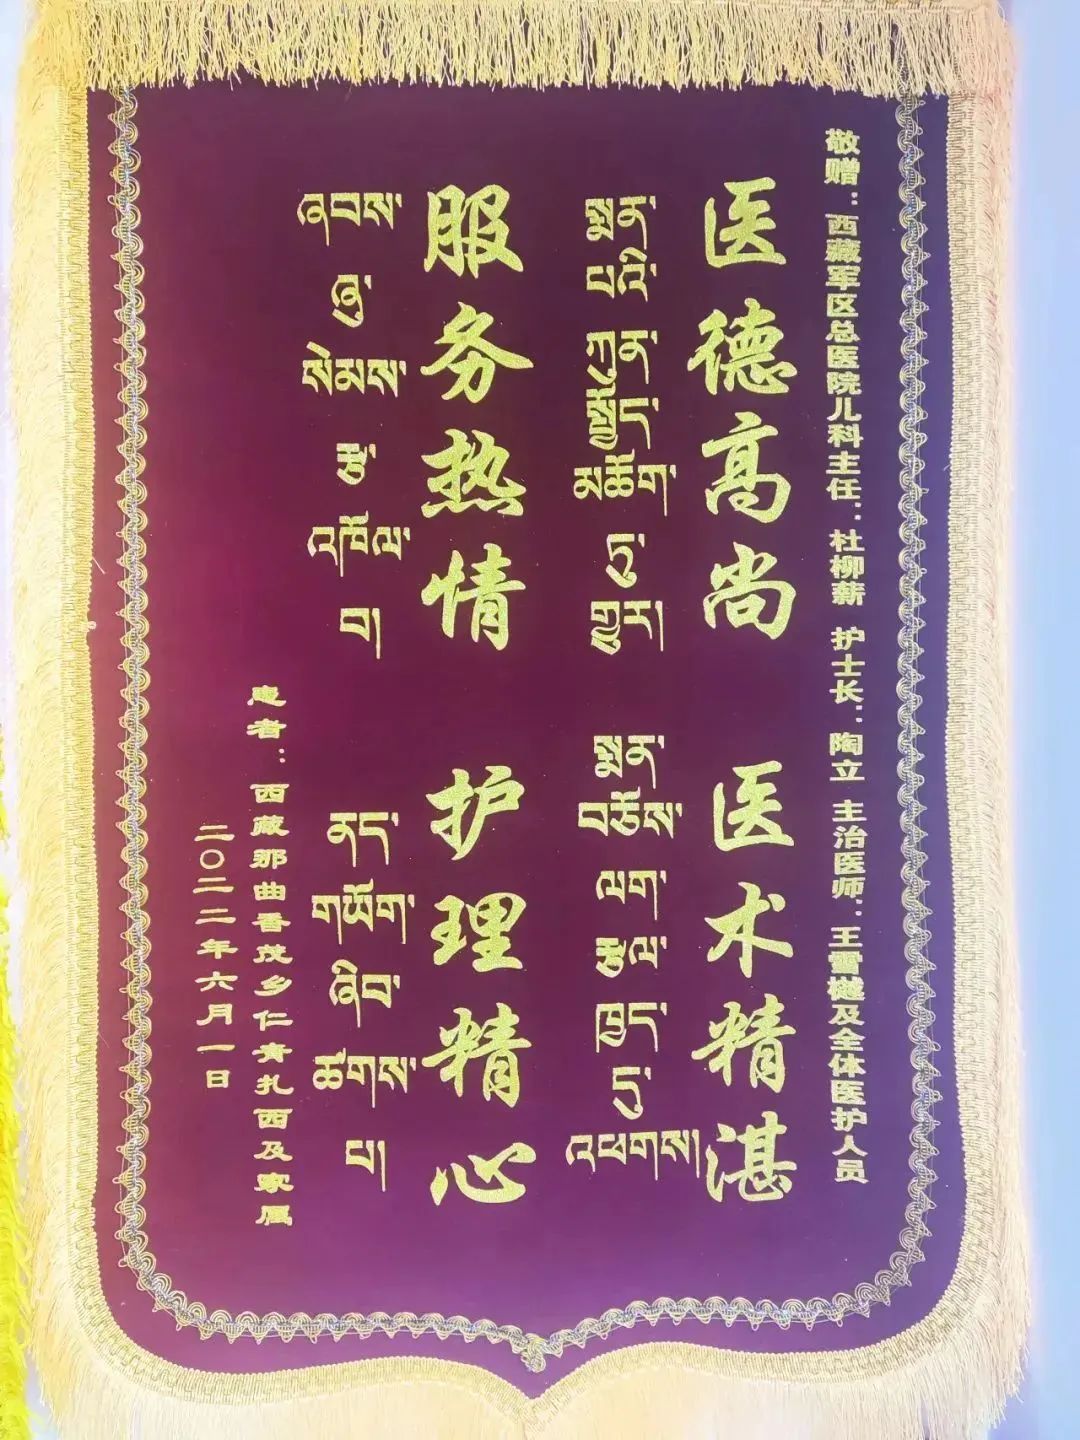 敬赠：西藏军区总医院儿科主任：杜柳薪 护士长：陶立 主治医师：王雪樾及全体医护人员
医德高尚 医术精湛
སྨན་པའི་ཀུན་སྤྱོད་མཆོག་ཏུ་གྱུར། སྨན་བཅོས་ལག་རྩལ་ཁྱད་དུ་འཕགས།
服务热情 护理精心
ཞབས་ཞུ་སེམས་རྩ་འཁོལ་བ། ནད་གཡོག་ཞིབ་ཚགས་པ།
患者：西藏那曲香茂乡仁青扎西及家属
二〇二二年六月一日